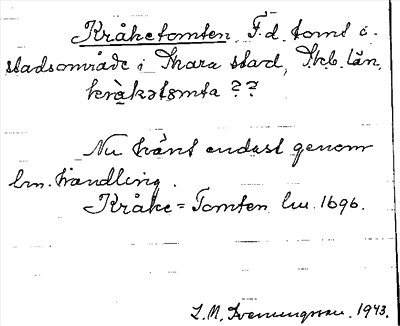 Kråketomten. F.d. tomt å
stadsområde i Skara stad, Skb. län.
kråkətomta ??
Nu känt endast genom
lm. handling.
Kråke=Tomten lm. 1696.
1943.